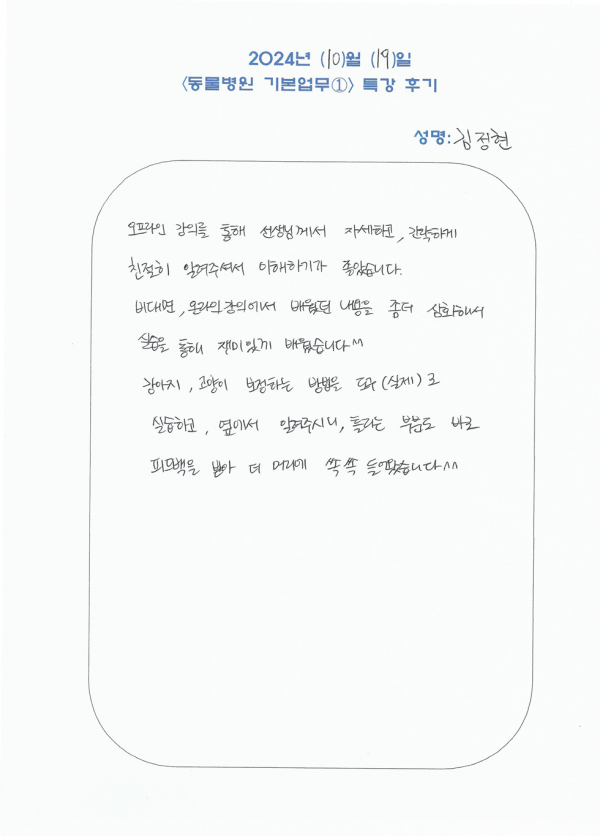 2024년 (10)월 (19)일
<동물병원 기본업무①> 특강 후기
성명: 김정현
오프라인 강의를 통해 선생님께서 자세하고, 간략하게
친절히 알려주셔서 이해하기가 좋았습니다.
비대면, 온라인강의에서 배웠던 내용을 좀더 심화해서
실습을 통해 재미있게 배웠습니다^^
강아지, 고양이 보정하는 방법을 (실제)로
실습하고, 옆에서 알려주시니, 틀리는 부분도 바로
피드백을 받아 더 머리에 쏙쏙 들어왔습니다^^